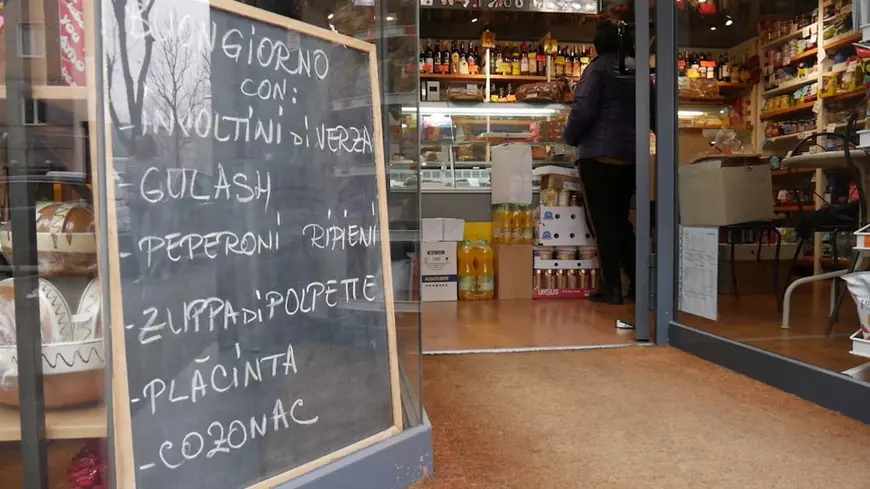 BUONGIORNO
CON:
- INVOLTINI Di VERZA
- GULASH
- PEPERONI RIPIENI
- ZUPPA di POLPETTE
- PLĂCINTA
- COZONAC
URSUS